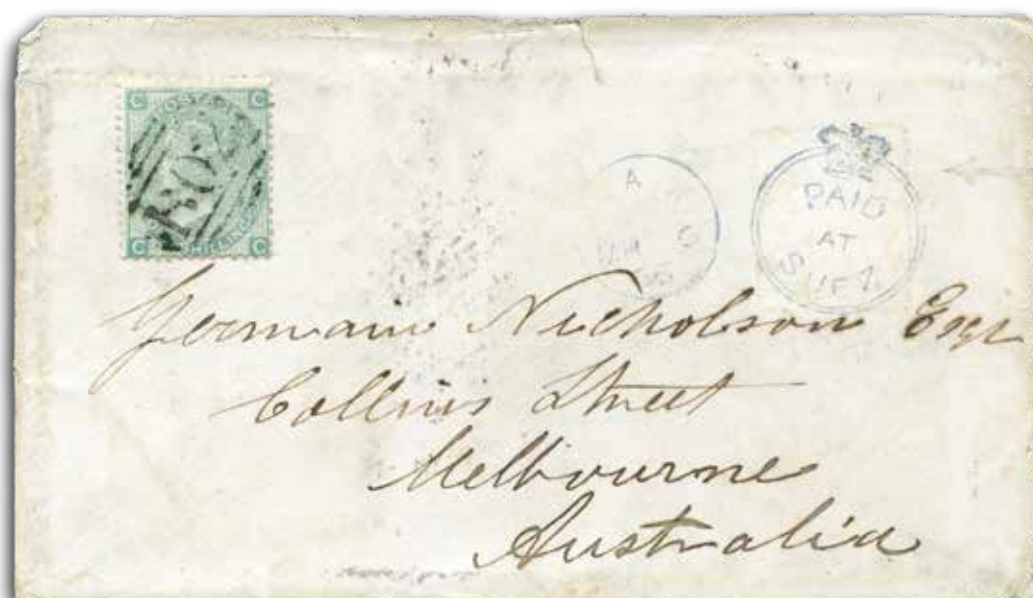 C C
POSTAGE
B02
C SHILLING C
A
6
PAID
AT
SUEZ
Germain Nicholson Esqr
Collins Street
Melbourne
Australia